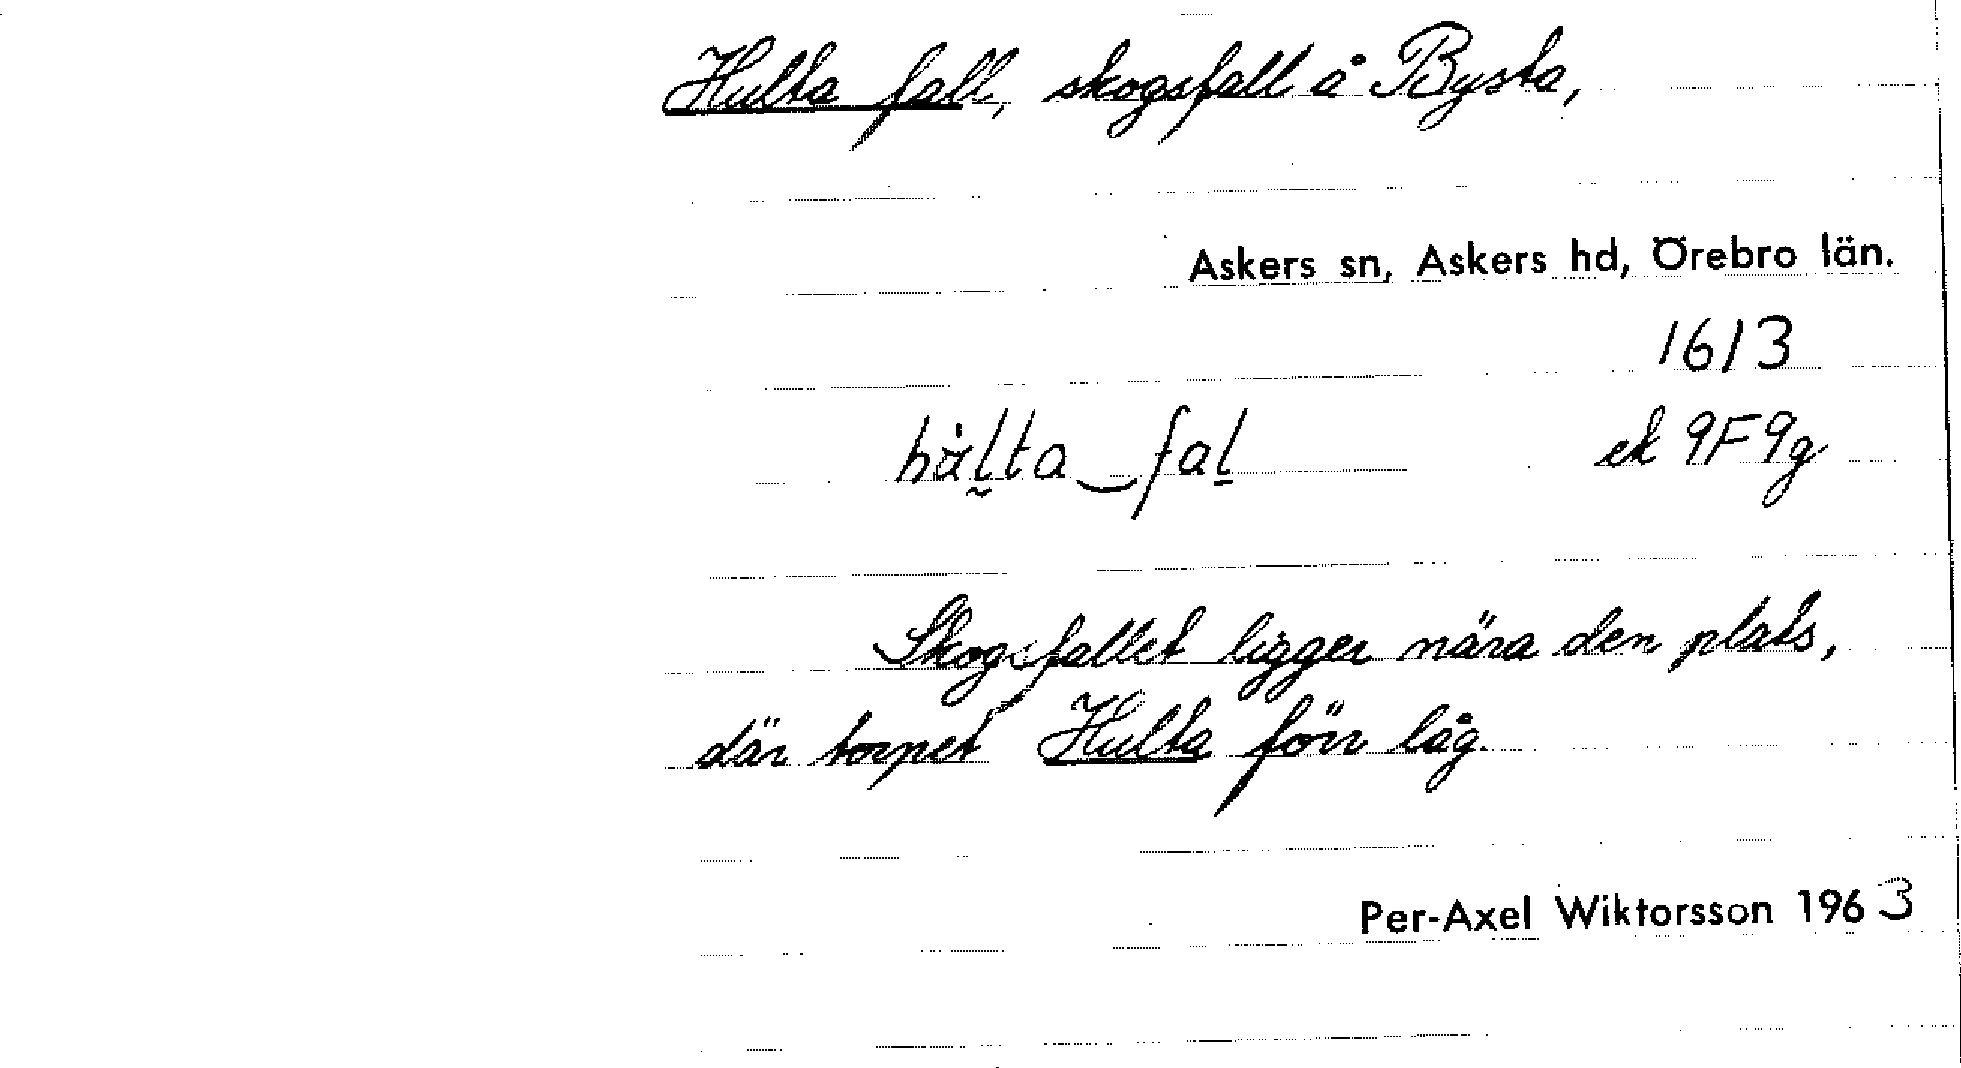 Hulta fall, skogsfall å Bysta,
Askers sn, Askers hd, Örebro län.
1613
hålta fal ek 9F9g
Skogsfallet ligger nära den plats,
där torpet Hulta förr låg.
Per-Axel Wiktorsson 1963